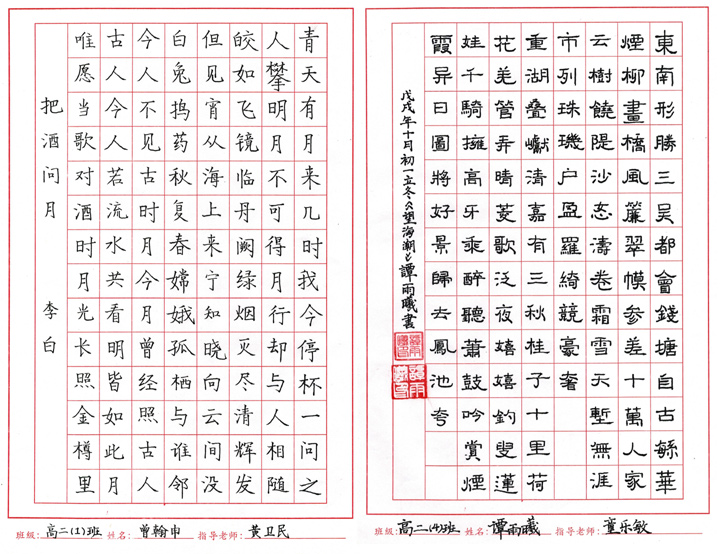 青天有月来几时我今停杯一问之
人攀明月不可得月行却与人相随
皎如飞镜临丹阙绿烟灭尽清辉发
但见宵从海上来宁知晓向云间没
白兔捣药秋复春嫦娥孤栖与谁邻
今人不见古时月今月曾经照古人
古人今人若流水共看明月皆如此
唯愿当歌对酒时月光长照金樽里
把酒问月 李白
班级: 高二(1)班 姓名: 曾翰申 指导老师: 黄卫民
東南形勝三吴都會錢塘自古緐華
煙柳畫橋風簾翠幙参差十萬人家
云樹饒隄沙怒濤卷霜雪天塹無涯
市列珠璣户盈羅綺競豪奢
重湖疊巘清嘉有三秋桂子十里荷
花羌管弄晴菱歌泛夜嬉嬉釣叟蓮
娃千騎擁高牙乘醉聽蕭鼓吟賞煙
霞异日圖將好景歸去鳳池夸
戊戌年十月初一立冬《望海潮》譚雨曦書
班级: 高二(4)班 姓名: 譚雨曦 指导老师: 童乐敏